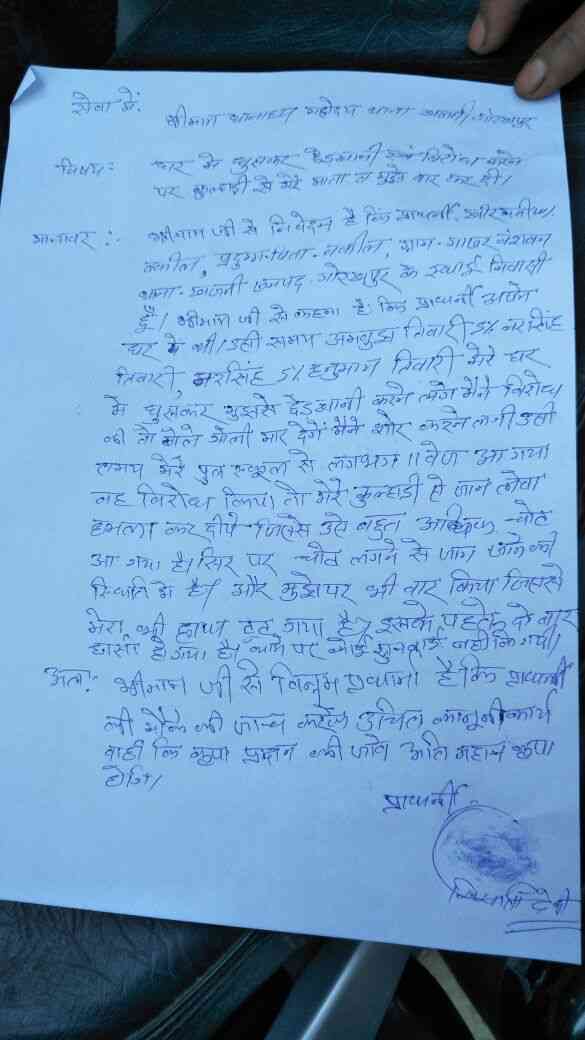 सेवा में:
श्रीमान थानाध्यक्ष महोदय थाना गोरखपुर
विषय: घर में घुसकर छेड़खानी एवं विरोध करने
पर कुल्हाड़ी से मेरे माता व मुझे वार कर दी।
मान्यवर :- श्रीमान जी से निवेदन है कि प्रार्थनी
ग्राम-
थाना- खजनी जनपद-गोरखपुर के स्थाई निवासी
हूँ। श्रीमान जी से कहना है कि प्रार्थनी अपने
घर पे थी। उसी समय तिवारी S/o नरसिंह
तिवारी, नरसिंह S/o हनुमान तिवारी मेरे घर
में घुसकर मुझसे छेड़खानी करने लगे मैंने विरोध
की तो बोले गोली मार देगें मैंने शोर करने लगी उसी
समय मेरे पुत्र स्कूल से लगभग 11 बजे आ गया
वह विरोध किया तो मेरे कुल्हाडी से जान लेवा
हमला कर दीये जिससे उसे बहुत अधिक चोट
आ गया है। सिर पर चोट लगने से जान जाने की
स्थिति हो है। और मुझेपर भी वार किया जिससे
मेरा भी हाथ टुट गया है। इसके पहले दो बार
हो गया है। थाने पर कोई सुनवाई नहीं कि गयी।
अतः श्रीमान जी से विनम्र प्रार्थना है कि प्रार्थनी
की मौके की जान्च करके उचित कानूनी कार्य
वाही कि कृपा प्रदान की जावे अति महान कृपा
होगि।
प्रार्थनी
देवी